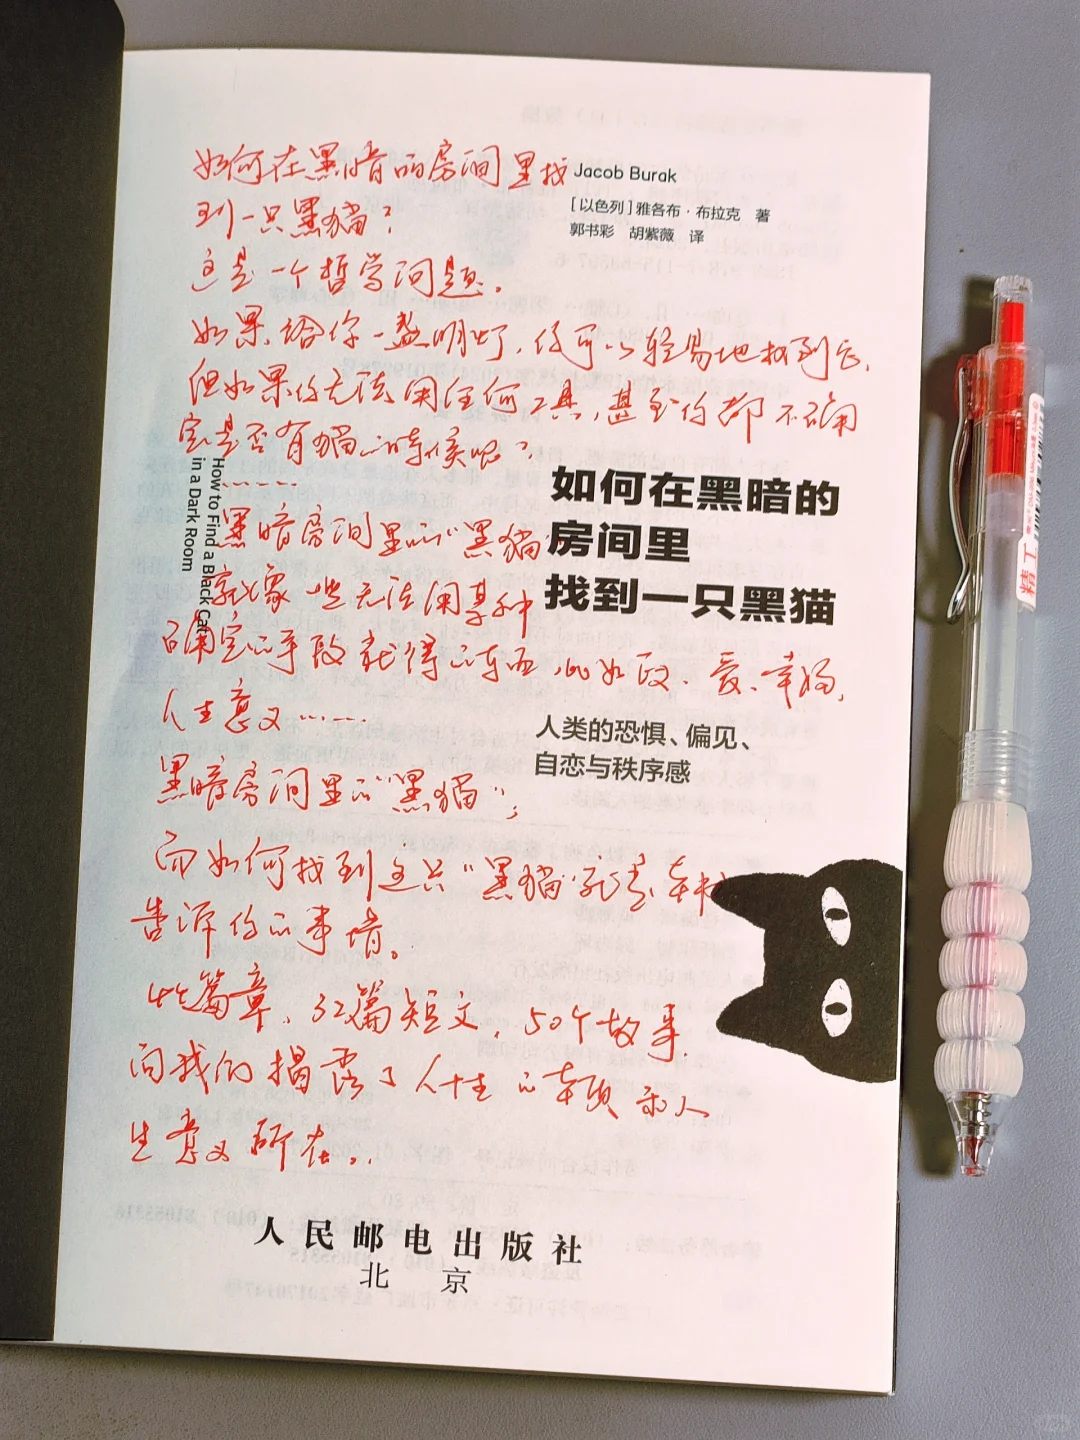 如何在黑暗的房间里找
到一只黑猫？
这是一个哲学问题。
如果给你一盏明灯，你可以轻易地找到它，
但如果你无法用任何工具，甚至你都不确
定是否有猫的时候呢？
……
黑暗房间里的“黑猫”
就像一些无法用某种
确定的手段就得的东西，比如
爱、幸福、
人生意义……
黑暗房间里的“黑猫”；
而如何找到这只“黑猫”就是本书
告诉你的事情。
篇章、32篇短文，50个故事，
向我们揭露了人生的本质和人
生意义所在。
Jacob Burak
［以色列］雅各布·布拉克 著
郭书彩 胡紫薇 译
How to Find a Black Cat
in a Dark Room
如何在黑暗的
房间里
找到一只黑猫
人类的恐惧、偏见、
自恋与秩序感
人民邮电出版社
北京
精工